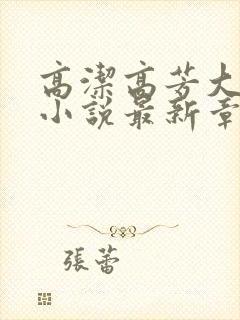 高潔高芳大
小說最新章
張蕾